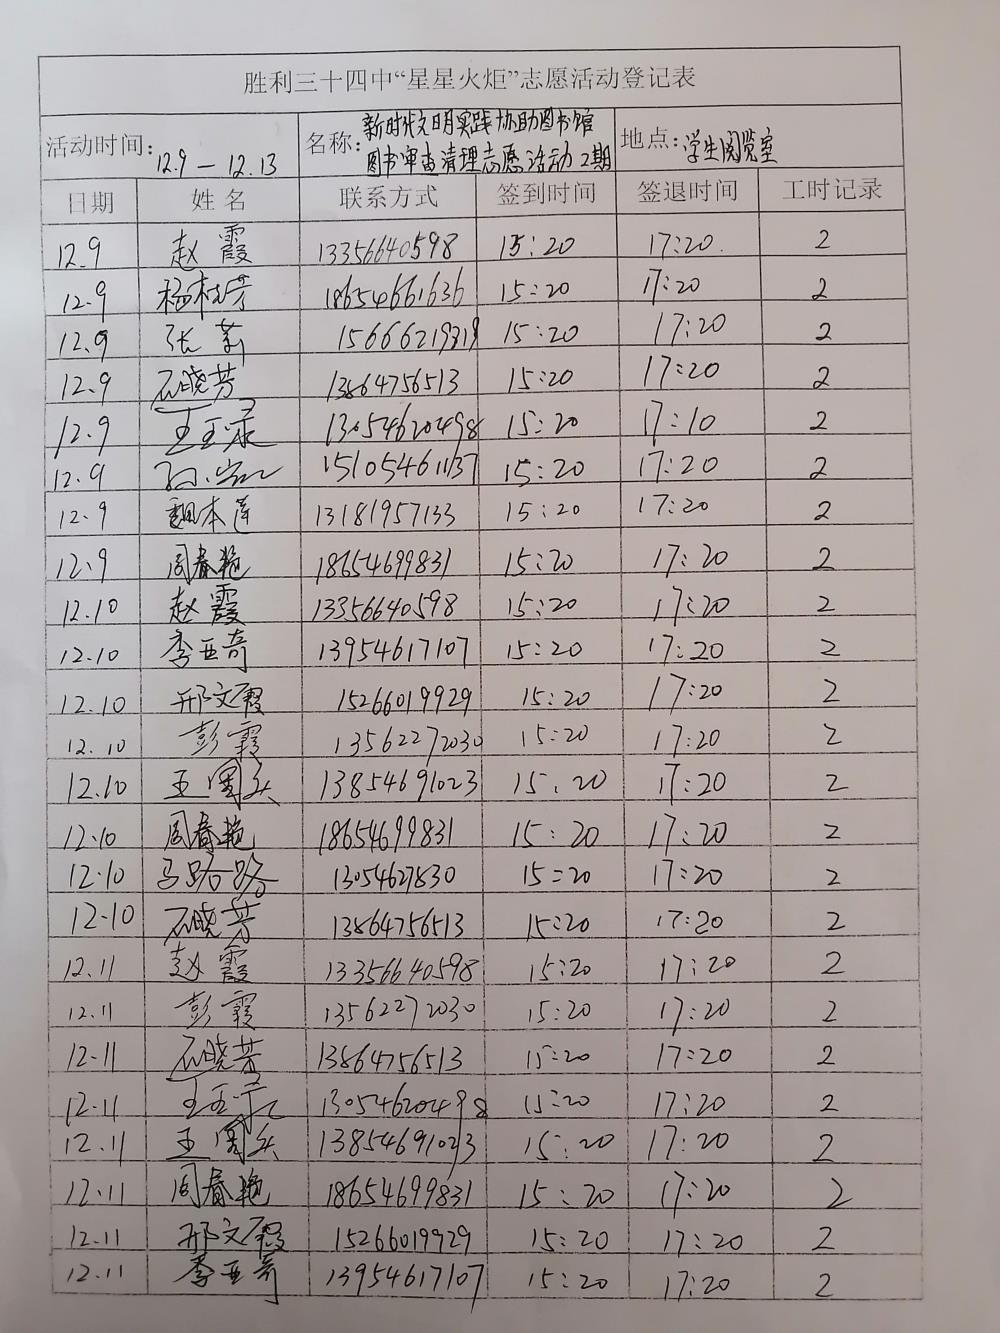 胜利三十四中“星星火炬”志愿活动登记表
活动时间: 12.9 — 12.13 名称: 新时代文明实践协助图书馆 地点: 学生阅览室
图书审查清理志愿活动2期
日期 姓名 联系方式 签到时间 签退时间 工时记录
12.9 赵霞 13356640598 15:20 17:20 2
12.9 杨桂芳 18654661636 15:20 17:20 2
12.9 张莉 15666219319 15:20 17:20 2
12.9 石晓芳 13864756513 15:20 17:20 2
12.9 王玉 13054620498 15:20 17:10 2
12.9 15105461137 15:20 17:20 2
12.9 魏本莲 13181957133 15:20 17:20 2
12.9 周春艳 18654699831 15:20 17:20 2
12.10 赵霞 13356640598 15:20 17:20 2
12.10 李亚奇 13954617107 15:20 17:20 2
12.10 邢文霞 15266019929 15:20 17:20 2
12.10 彭霞 13562272030 15:20 17:20 2
12.10 王 13854691023 15:20 17:20 2
12.10 周春艳 18654699831 15:20 17:20 2
12.10 马路路 13054627830 15:20 17:20 2
12.10 石晓芳 13864756513 15:20 17:20 2
12.11 赵霞 13356640598 15:20 17:20 2
12.11 彭霞 13562272030 15:20 17:20 2
12.11 石晓芳 13864756513 15:20 17:20 2
12.11 王玉 13054620498 15:20 17:20 2
12.11 王 13854691023 15:20 17:20 2
12.11 周春艳 18654699831 15:20 17:20 2
12.11 邢文霞 15266019929 15:20 17:20 2
12.11 李亚奇 13954617107 15:20 17:20 2